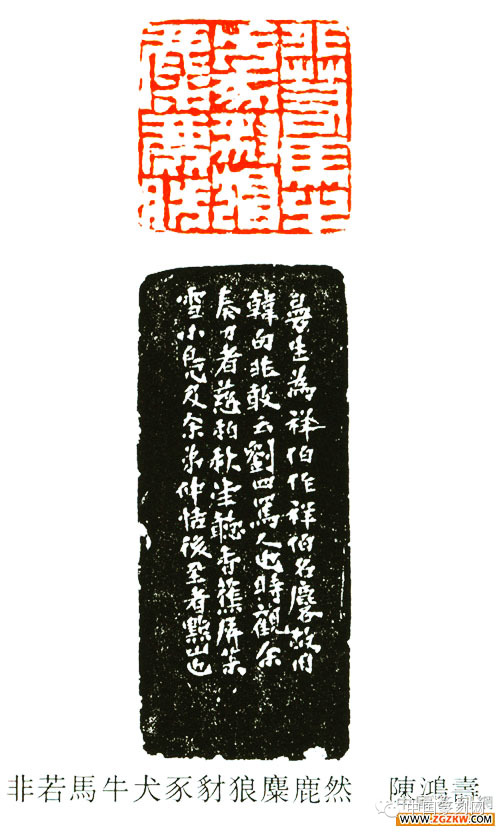 非若馬牛
犬豕豺狼
麋鹿然
曼生為祥伯作祥伯名麐故用
韓句非敢云劉四罵人也時觀余
奏刀者慈柏秋聽香蕉屏
雪小及余弟仲恬後至者點山也
非若馬牛犬豕豺狼麋鹿然 陳鴻壽
中国篆刻网
WWW.ZGZKW.COM